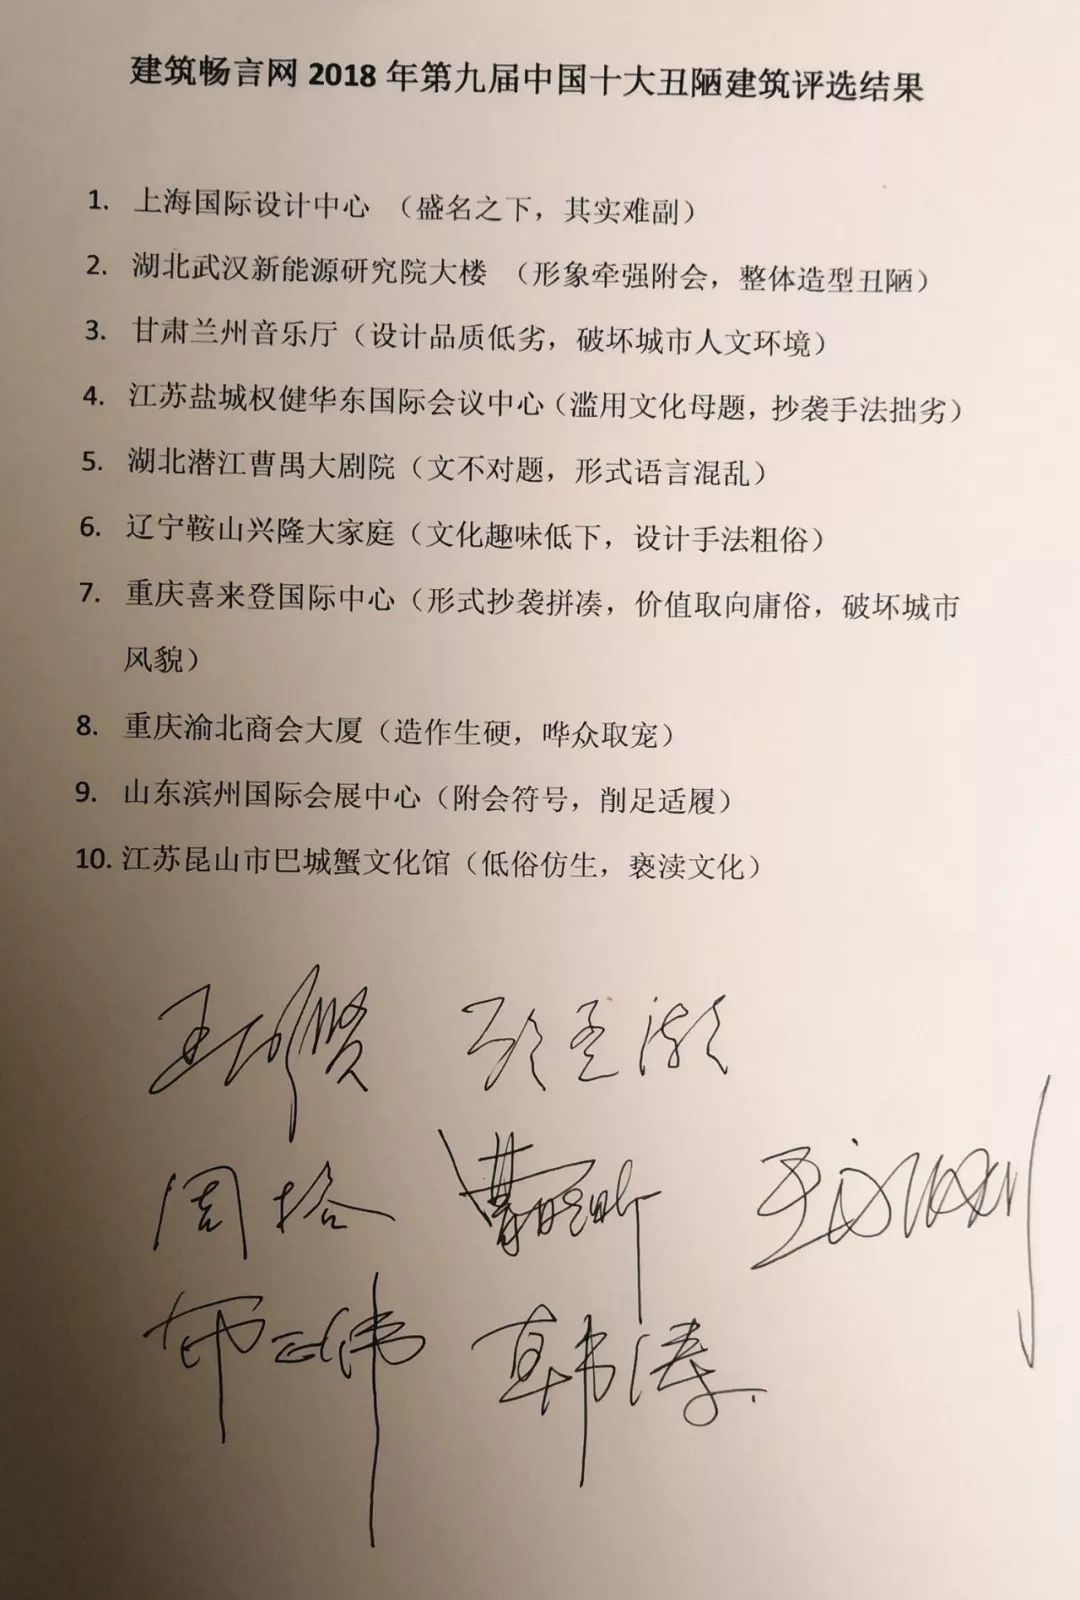 建筑畅言网 2018 年第九届中国十大丑陋建筑评选结果
1. 上海国际设计中心 （盛名之下，其实难副）
2. 湖北武汉新能源研究院大楼 （形象牵强附会，整体造型丑陋）
3. 甘肃兰州音乐厅（设计品质低劣，破坏城市人文环境）
4. 江苏盐城权健华东国际会议中心（滥用文化母题，抄袭手法拙劣）
5. 湖北潜江曹禺大剧院（文不对题，形式语言混乱）
6. 辽宁鞍山兴隆大家庭（文化趣味低下，设计手法粗俗）
7. 重庆喜来登国际中心（形式抄袭拼凑，价值取向庸俗，破坏城市
风貌）
8. 重庆渝北商会大厦（造作生硬，哗众取宠）
9. 山东滨州国际会展中心（附会符号，削足适履）
10. 江苏昆山市巴城蟹文化馆（低俗仿生，亵渎文化）
王明贤 顾孟潮
周榕 曹晓昕 王永刚
韩涛